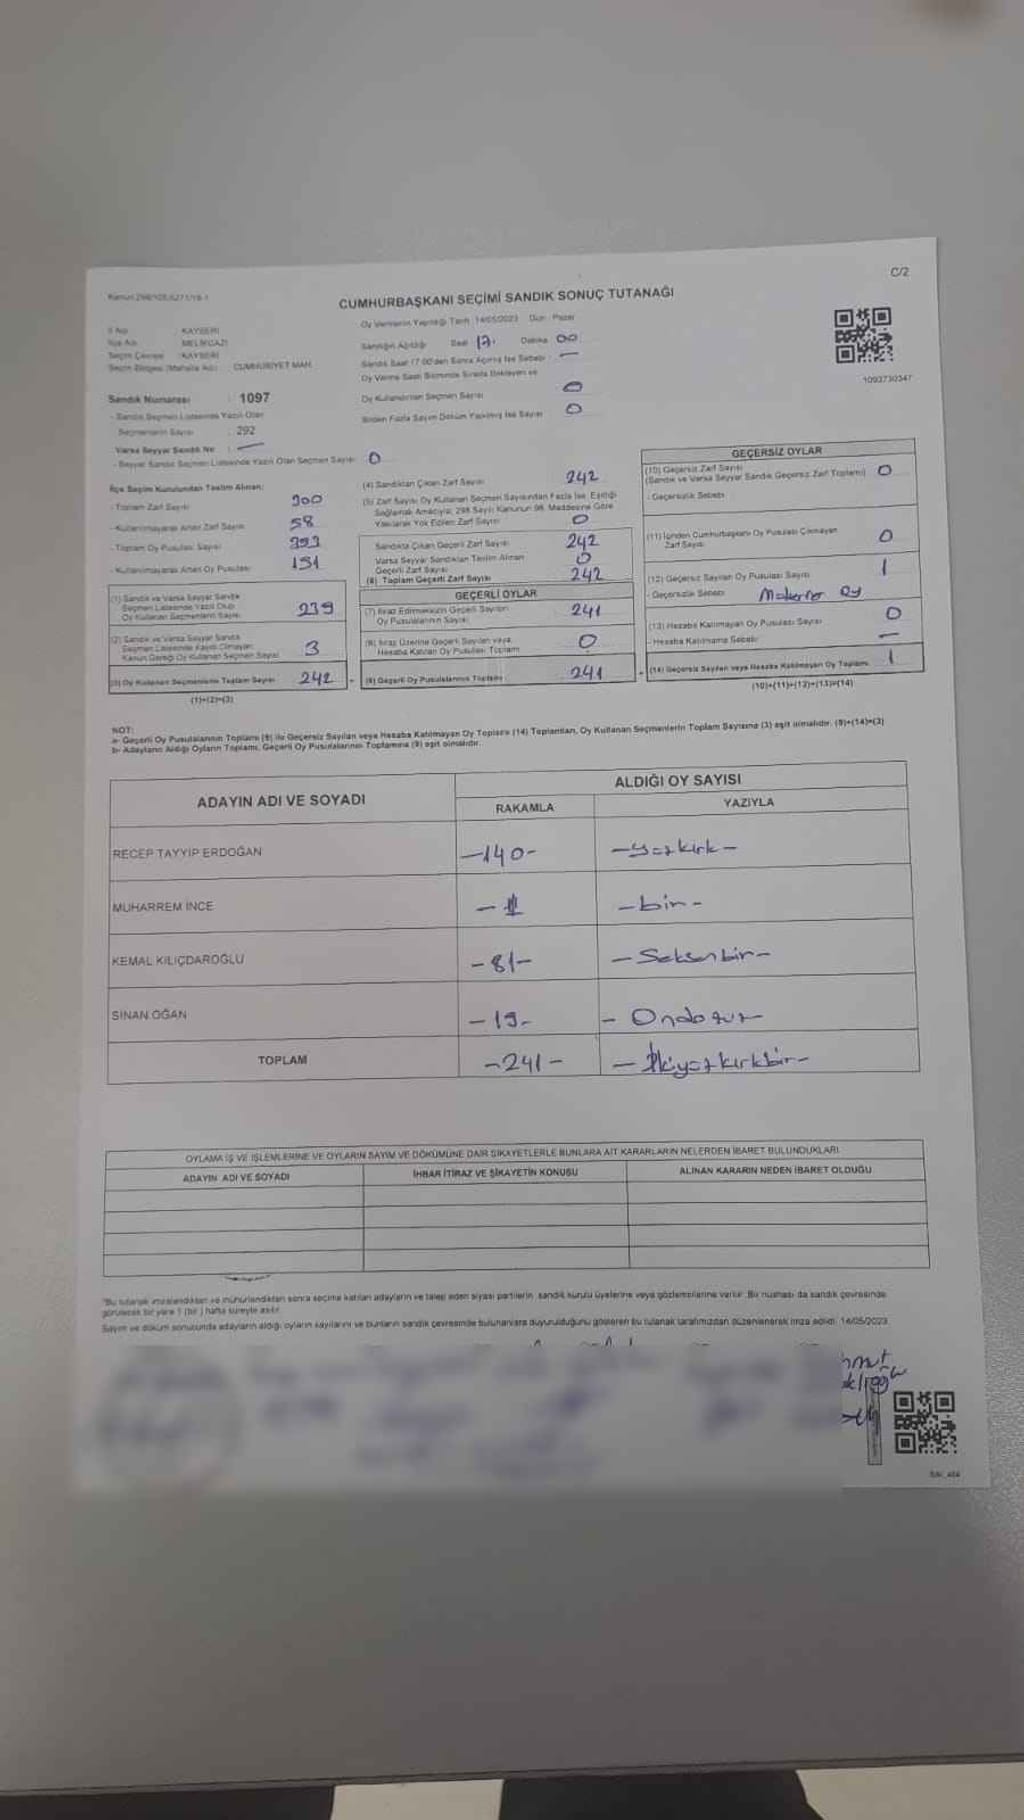 C/2
CUMHURBAŞKANI SEÇİMİ SANDIK SONUÇ TUTANAĞI
Oy Vermenin Yapıldığı Tarih : 14/05/2023 Gün : Pazar
İl Adı : KAYSERİ
İlçe Adı : MELİKGAZİ
Seçim Çevresi : KAYSERİ
CUMHURİYET MAH.
Sandığın Açıldığı Saat 17. Dakika 00
Sandık Saat 17:00'den Sonra Açılmış İse Sebebi : —
Oy Verme Saati Bitiminde Sırada Bekleyen ve
Oy Kullandırılan Seçmen Sayısı 0
Birden Fazla Sayım Döküm Yapılmış İse Sayısı 0
1093730347
Sandık Numarası : 1097
- Sandık Seçmen Listesinde Yazılı Olan
Seçmenlerin Sayısı : 292
Varsa Seyyar Sandık No : —
- Seyyar Sandık Seçmen Listesinde Yazılı Olan Seçmen Sayısı : 0
İlçe Seçim Kurulundan Teslim Alınan:
- Toplam Zarf Sayısı 300
- Kullanılmayarak Artan Zarf Sayısı 58
- Toplam Oy Pusulası Sayısı 393
- Kullanılmayarak Artan Oy Pusulası 151
(1) Sandık ve Varsa Seyyar Sandık
Seçmen Listesinde Yazılı Olup
Oy Kullanan Seçmenlerin Sayısı 239
(2) Sandık ve Varsa Seyyar Sandık
Seçmen Listesinde Kaydı Olmayan
Kanun Gereği Oy Kullanan Seçmen Sayısı 3
(3) Oy Kullanan Seçmenlerin Toplam Sayısı 242
(1)+(2)=(3)
(4) Sandıktan Çıkan Zarf Sayısı 242
(5) Zarf Sayısı Oy Kullanan Seçmen Sayısından Fazla İse, Eşitliği
Sağlamak Amacıyla, 298 Sayılı Kanunun 98. Maddesine Göre
Yakılarak Yok Edilen Zarf Sayısı 0
Sandıkta Çıkan Geçerli Zarf Sayısı 242
Varsa Seyyar Sandıktan Teslim Alınan
Geçerli Zarf Sayısı 0
(6) Toplam Geçerli Zarf Sayısı 242
GEÇERLİ OYLAR
(7) İtiraz Edilmeksizin Geçerli Sayılan
Oy Pusulalarının Sayısı 241
(8) İtiraz Üzerine Geçerli Sayılan veya
Hesaba Katılan Oy Pusulası Toplamı 0
(9) Geçerli Oy Pusulalarının Toplamı 241
GEÇERSİZ OYLAR
(10) Geçersiz Zarf Sayısı
(Sandık ve Varsa Seyyar Sandık Geçersiz Zarf Toplamı) 0
- Geçersizlik Sebebi
(11) İçinden Cumhurbaşkanı Oy Pusulası Çıkmayan
Zarf Sayısı 0
(12) Geçersiz Sayılan Oy Pusulası Sayısı 1
- Geçersizlik Sebebi Mükerrer Oy
(13) Hesaba Katılmayan Oy Pusulası Sayısı 0
- Hesaba Katılmama Sebebi —
(14) Geçersiz Sayılan veya Hesaba Katılmayan Oy Toplamı 1
(10)+(11)+(12)+(13)=(14)
NOT:
a- Geçerli Oy Pusulalarının Toplamı (9) ile Geçersiz Sayılan veya Hesaba Katılmayan Oy Toplamı (14) Toplamları, Oy Kullanan Seçmenlerin Toplam Sayısına (3) eşit olmalıdır. (9)+(14)=(3)
b- Adayların Aldığı Oyların Toplamı, Geçerli Oy Pusulalarının Toplamına (9) eşit olmalıdır.
ADAYIN ADI VE SOYADI
ALDIĞI OY SAYISI
RAKAMLA YAZIYLA
RECEP TAYYİP ERDOĞAN -140- -yüzkırk-
MUHARREM İNCE -1 -bir-
KEMAL KILIÇDAROĞLU -81- -Seksenbir-
SİNAN OĞAN -19- - Ondokuz-
TOPLAM -241- - İkiyüzkırkbir-
OYLAMA İŞ VE İŞLEMLERİNE VE OYLARIN SAYIM VE DÖKÜMÜNE DAİR ŞİKAYETLERLE BUNLARA AİT KARARLARIN NELERDEN İBARET BULUNDUKLARI
ADAYIN ADI VE SOYADI İHBAR İTİRAZ VE ŞİKAYETİN KONUSU ALINAN KARARIN NEDEN İBARET OLDUĞU
"Bu tutanak imzalandıktan ve mühürlendikten sonra seçime katılan adayların ve talep eden siyasi partilerin, sandık kurulu üyelerine veya gözlemcilerine verilir. Bir nüshası da sandık çevresinde
görülecek bir yere 1 (bir) hafta süreyle asılır.
Sayım ve döküm sonucunda adayların aldığı oyların sayılarını ve bunların sandık çevresinde bulunanlara duyurulduğunu gösteren bu tutanak tarafımızdan düzenlenerek imza edildi. 14/05/2023